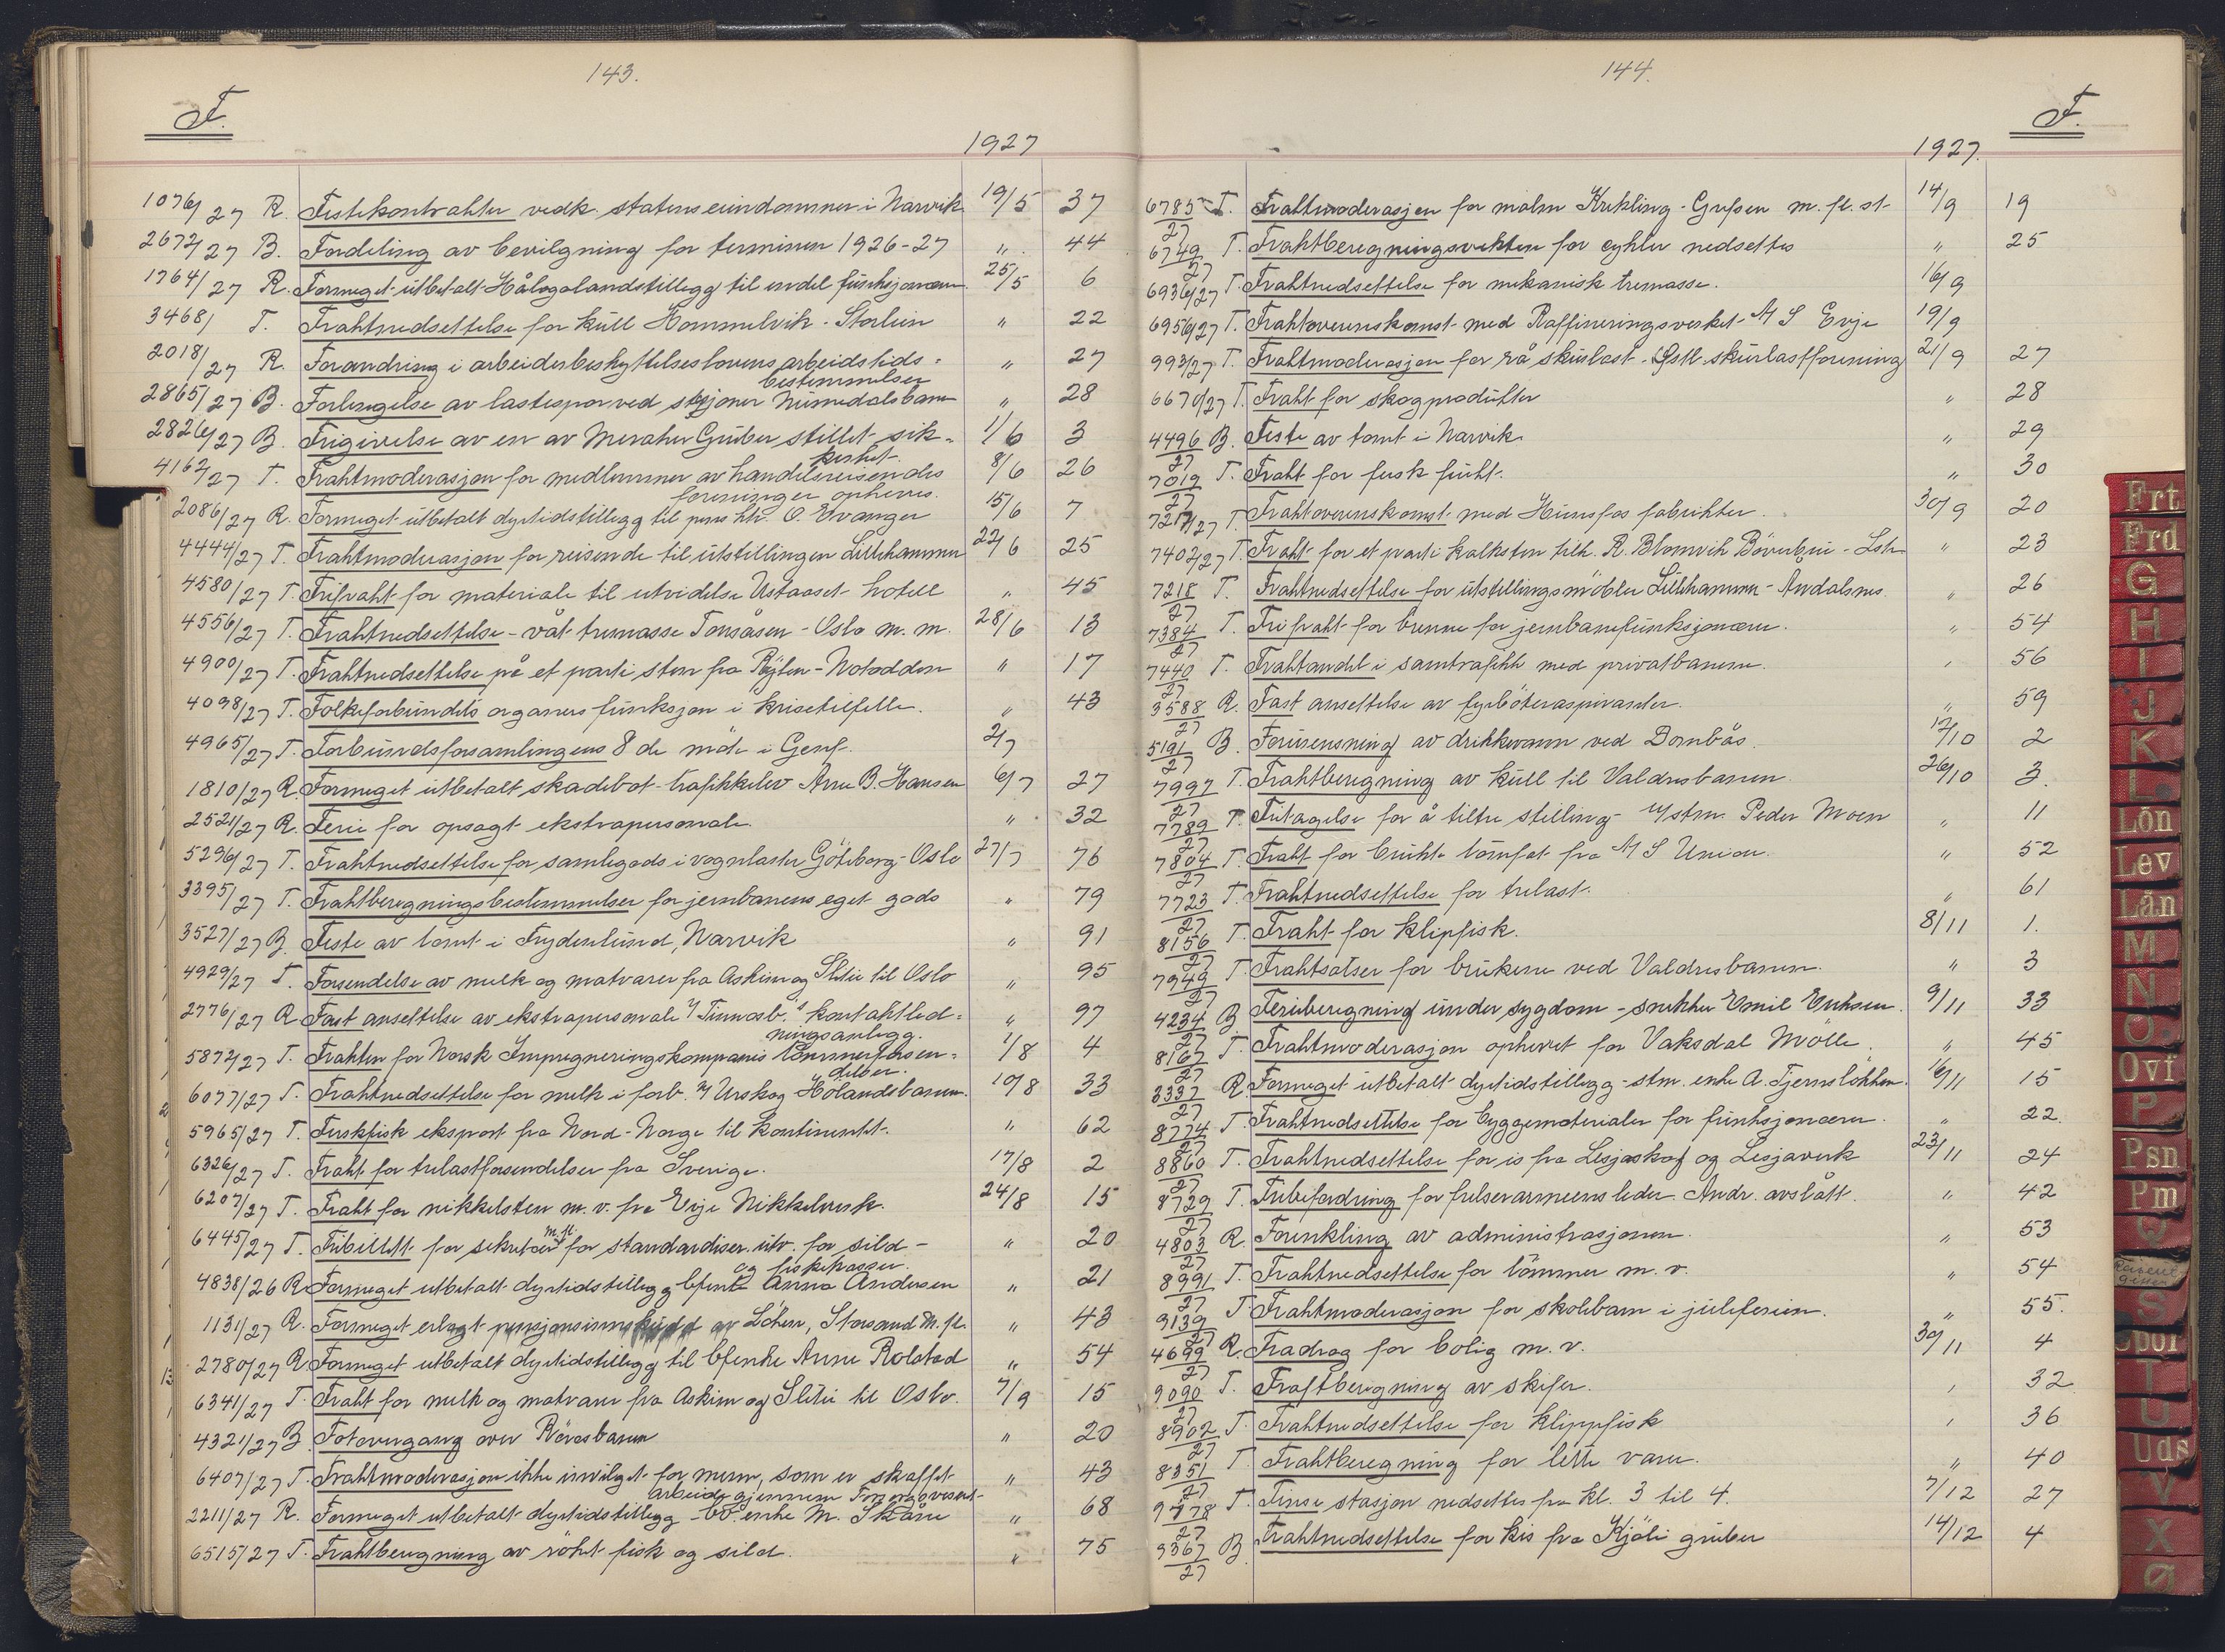 143.
F.
1927
1076/27 R. Festekontrakter vedk. statens eiendommer i Narvik 19/5 37
2672/27 B. Fordeling av bevilgning for terminen 1926-27 " 44
1764/27 R. Formeget utbetalt Hålogalandstillegg til endel funksjonærer 25/5 6
3468/ T. Fraktnedsettelse for kull Hommelvik - Storlien " 22
2018/27 R. Forandring i arbeiderbeskyttelseslovens arbeidstids- " 27
bestemmelser
2865/27 B. Forlengelse av lastespor ved stasjoner Numedalsbanen " 28
2826/27 B. Frigivelse av en av Meraker Gruber stillet sik- 1/6 3
kerhet.
4162/27 T. Fraktmoderasjon for medlemmer av handelsreisendes 8/6 26
foreninger opheves.
2086/27 R. Formeget utbetalt dyrtidstillegg til pens. O. Evanger 15/6 7
4444/27 T. Fraktmoderasjon for reisende til utstillingen Lillehammer 22/6 25
4580/27 T. Frifrakt for materiale til utvidelse Ustaoset hotell " 45
4556/27 T. Fraktnedsettelse - våt tremasse Tonsåsen - Oslo m. m. 28/6 13
4900/27 T. Fraktnedsettelse på et parti sten fra Røyken - Notodden " 17
4098/27 T. Folkeforbundets organers funksjon i krisetilfelle. " 43
4965/27 T. Forbundsforsamlingens 8 de møte i Genf. 2/7
1810/27 R. Formeget utbetalt skadebot - trafikkelev Arne B. Hansen 6/7 27
2521/27 R. Ferie for opsagt ekstrapersonale. " 32
5296/27 T. Fraktnedsettelse for samlegods i vognlaster Göteborg - Oslo 27/7 76
3395/27 T. Fraktberegningsbestemmelser for jernbanens eget gods " 79
3527/27 B. Feste av tomt i Frydenlund, Narvik " 91
4929/27 T. Forsendelse av melk og matvarer fra Askim og Slitu til Oslo " 95
2776/27 R. Fast ansettelse av ekstrapersonale v/ Tinnosb.s kontaktled- " 97
ningsanlegg.
5872/27 T. Frakten for Norsk Impregneringskompanis tømmerforsen- 1/8 4
delser.
6077/27 T. Fraktnedsettelse for melk i forb. m/ Urskog Hölandsbanen. 10/8 33
5965/27 T. Ferskfisk eksport fra Nord-Norge til kontinentet. " 62
6326/27 T. Frakt for trelastforsendelser fra Sverige. 17/8 2
6207/27 T. Frakt for nikkelsten m. v. fra Evje Nikkelverk. 24/8 15
6445/27 T. Fribillett for sekretær m. fl. for standardiser. utv. for sild- " 20
og fiskekasser.
4838/26 R. Formeget utbetalt dyrtidstillegg bfenke Anna Andersen " 21
1131/27 R. Formeget erlagt pensjonsinnskudd av Löken, Storsand m. fl. " 43
2780/27 R. Formeget utbetalt dyrtidstillegg til bfenke Anne Rolstad " 54
6341/27 T. Frakt for melk og matvarer fra Askim og Slitu til Oslo. 7/9 15
4321/27 B. Fotovergang over Rörosbanen " 20
6407/27 T. Fraktmoderasjon ikke innvilget for menn, som er skaffet " 43
arbeide gjennem
2211/27 R. Formeget utbetalt dyrtidstillegg - bv. enke M. Skåne " 68
6515/27 T. Fraktberegning av röket fisk og sild. " 75
144.
1927.
F.
6785/27 T. Fraktmoderasjon for malm Krekling - Grefsen m. fl. st. 14/9 19
6749/27 T. Fraktberegningsvekten for cykler nedsettes " 25
6936/27 T. Fraktnedsettelse for mekanisk tremasse. 16/9
6956/27 T. Fraktoverenskomst med Raffineringsverket A/S Evje 19/9
993/27 T. Fraktmoderasjon for rå skurlast - Østl. skurlastforening 21/9 27
6670/27 T. Frakt for skogprodukter " 28
4496/27 B. Feste av tomt i Narvik " 29
7019/27 T. Frakt for fersk frukt. " 30
7217/27 T. Fraktoverenskomst med Hunsfos fabrikker. 30/9 20
7402/27 T. Frakt for et parti kalksten tilh. R. Blomvik Böverbru - Lstr " 23
7218/27 T. Fraktnedsettelse for utstillingsmöbler Lillehammer - Åndalsnes " 26
7384/27 T. Fri frakt for brenne for jernbanefunksjonærer. " 54
7440/27 T. Fraktandel i samtrafikk med privatbanene. " 56
3588/27 R. Fast ansettelse av fyrböteraspiranter. " 59
5191/27 B. Forurensning av drikkevann ved Dombås. 12/10 2
7997/27 T. Fraktberegning av kull til Valdresbanen. 26/10 3.
7789/27 T. Fritagelse for å tiltre stilling u/stm. Peder Moen " 11
7804/27 T. Frakt for brukte tomfat fra A/S Union. " 52
7723/27 T. Fraktnedsettelse for trelast. " 61
8156/27 T. Frakt for klipfisk. 8/11 1.
7949/27 T. Fraktsatser for brukene ved Valdresbanen. " 3
4234/27 B. Ferieberegning under sygdom - snekker Emil Eriksen. 9/11 33
8167/27 T. Fraktmoderasjon ophevet for Vaksdal Mölle. " 45
3337/27 R. Formeget utbetalt dyrtidstillegg - stm. enke A. Tjernsløkken. 16/11 15
8774/27 T. Fraktnedsettelse for byggematerialer for funksjonærer. " 22.
8860/27 T. Fraktnedsettelse for is fra Lesjaskog og Lesjaverk 23/11 24
8729/27 T. Fribefordring for frelsesarmeens leder. Andr. avslått. " 42
4803/27 R. Forenkling av administrasjonen. " 53
8991/27 T. Fraktnedsettelse for tömmer m. v. " 54
9139/27 T. Fraktmoderasjon for skolebarn i juleferien. " 55.
4699/27 R. Fradrag for bolig m. v. 30/11 4
9090/27 T. Fraftberegning av skifer. " 32
8902/27 T. Fraktnedsettelse for klippfisk " 36
8351/27 T. Fraktberegning for lette varer. " 40
9478/27 T. Finse stasjon nedsettes fra kl. 3 til 4. 7/12 27
9367/27 B. Fraktnedsettelse for kis fra Kjöli gruber 14/12 4
Frt
Frd
G
H
I
J
K
L
Lön
Lev
Lån
M
N
O
Ovf
P
Psn
Pm
Q
S
Spor
T
U
Uds
V
X
Ø